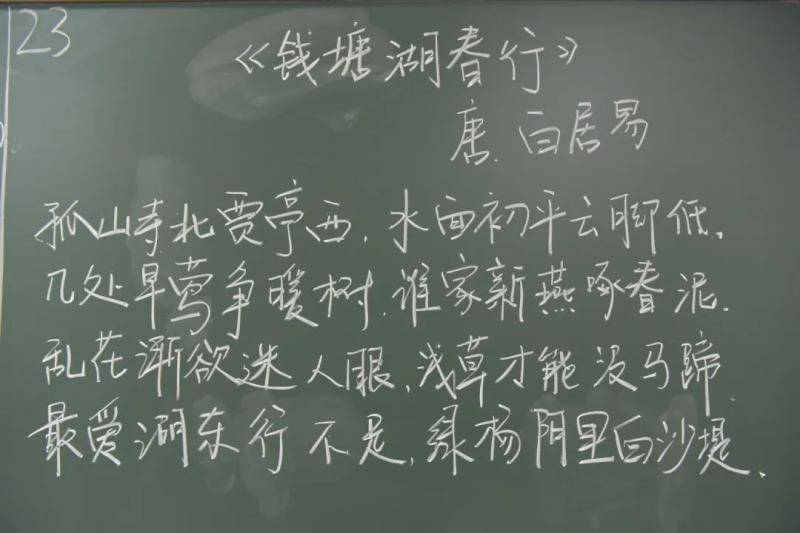 23
《钱塘湖春行》
唐.白居易
孤山寺北贾亭西,水面初平云脚低,
几处早莺争暖树,谁家新燕啄春泥.
乱花渐欲迷人眼,浅草才能没马蹄.
最爱湖东行不足,绿杨阴里白沙堤.